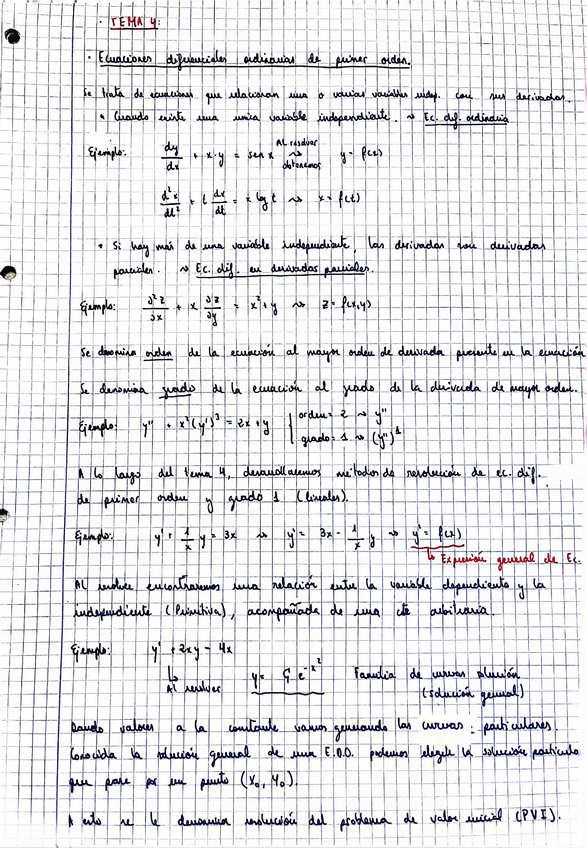 · TEMA 4:
· Ecuaciones diferenciales ordinarias de primer orden.
Se trata de ecuaciones que relacionan una o varias variables indep. con sus derivadas.
* Cuando existe una unica variable independiente. ⤳ Ec. dif. ordinaria
Ejemplo: dy/dx + x·y = sen x Al resolver obtenemos ⤳ y = f(x)
d²x/dt² + t dx/dt = x log t ⤳ x = f(t)
* Si hay más de una variable independiente, las derivadas son derivadas
parciales. ⤳ Ec. dif. en derivadas parciales.
Ejemplo: ∂²z/∂x + x ∂z/∂y = x² + y ⤳ z = f(x,y)
Se denomina orden de la ecuación al mayor orden de derivada presente en la ecuación
Se denomina grado de la ecuación al grado de la derivada de mayor orden.
Ejemplo: y'' + x²(y')³ = 2x + y | orden = 2 ⤳ y''
| grado = 1 ⤳ (y'')¹
A lo largo del tema 4, desarrollaremos métodos de resolución de ec. dif.
de primer orden y grado 1 (lineales).
Ejemplo: y' + 1/x y = 3x ⤳ y' = 3x - 1/x y ⤳ y' = f(x)
↳ Expresión general de Ec.
Al resolver encontraremos una relación entre la variable dependiente y la
independiente (Primitiva), acompañada de una cte arbitraria.
Ejemplo: y' + 2xy = 4x
↳ Al resolver y = C e^-x² Familia de curvas solución
(solución general)
Dando valores a la constante vamos generando las curvas particulares.
Conocida la solución general de una E.D.O. podemos elegir la solución particular
que pase por un punto (x₀, y₀).
A esto se le denomina resolución del problema de valor inicial (PVI).